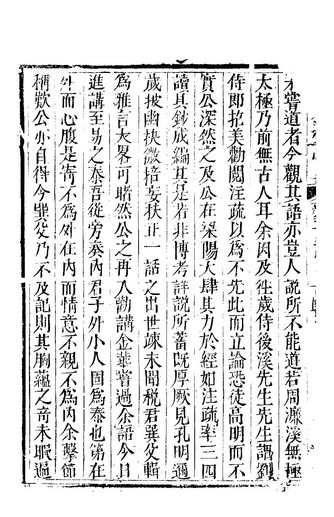 嘗道者今觀其語亦豈人說所不能道若周濂溪無極
太極乃前無古人耳余因及徃歲侍後溪先生先生謂劉
侍郎挹美勸閱注疏以為不先此而立論恐徒高明而不
實公深然之及公在渠陽大肆其力於經如注疏率三四
讀具鈔成編其告是若非博考詳說所蓄既厚厥見孔明遇
歲披幽抉微掊妄扶正一話之出世竦未聞稅君巽父輯
為雅言大畧可睹然公之再入勸講金華嘗過余語今日
進講至易之泰吾從旁奏內君子外小人固為泰也第在
外而心腹是寄不為外在內而情意不親不為內余擊節
稱歎公亦自得今巽父乃不及記則其胸蘊之竒未暇過